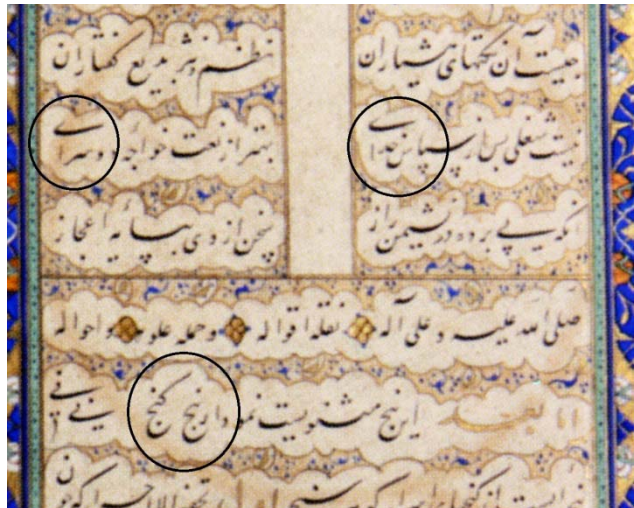 چیست آن نکتهای هشیاران نظم و نثر بدیع گفتاران
نیست شغلی پس از سپاس خدای بهتر از نعت خواجهٔ دوسرای
آنکه پی برده در نشیمن راز سخن از وی بپایهٔ اعجاز
صلی الله علیه و علی آله نقله اقواله و حمله علومه و احواله
اما بعد این پنج مثنویست نمودار پنج گنج